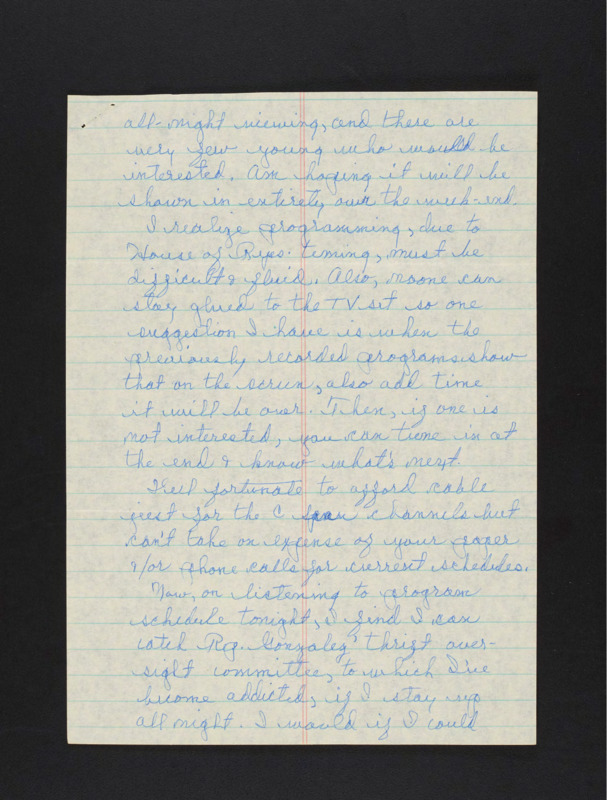 all-night viewing, and there are
very few young who would be
interested. Am hoping it will be
shown in entirety over the week-end.
I realize programming, due to
House of Reps. timing, must be
difficult & fluid. Also, noone can
stay glued to the TV set so one
suggestion I have is when the
previously recorded programs show
that on the screen, also add time
it will be over. Then, if one is
not interested, you can tune in at
the end & know what's next.
I feel fortunate to afford cable
just for the C span channels but
can't take on expense of your paper
&/or phone calls for current schedules.
Now, on listening to program
schedule tonight, I find I can
catch Rep. Gonzalez' thrift over-
sight committee, to which I've
become addicted, if I stay up
all night. I would if I could